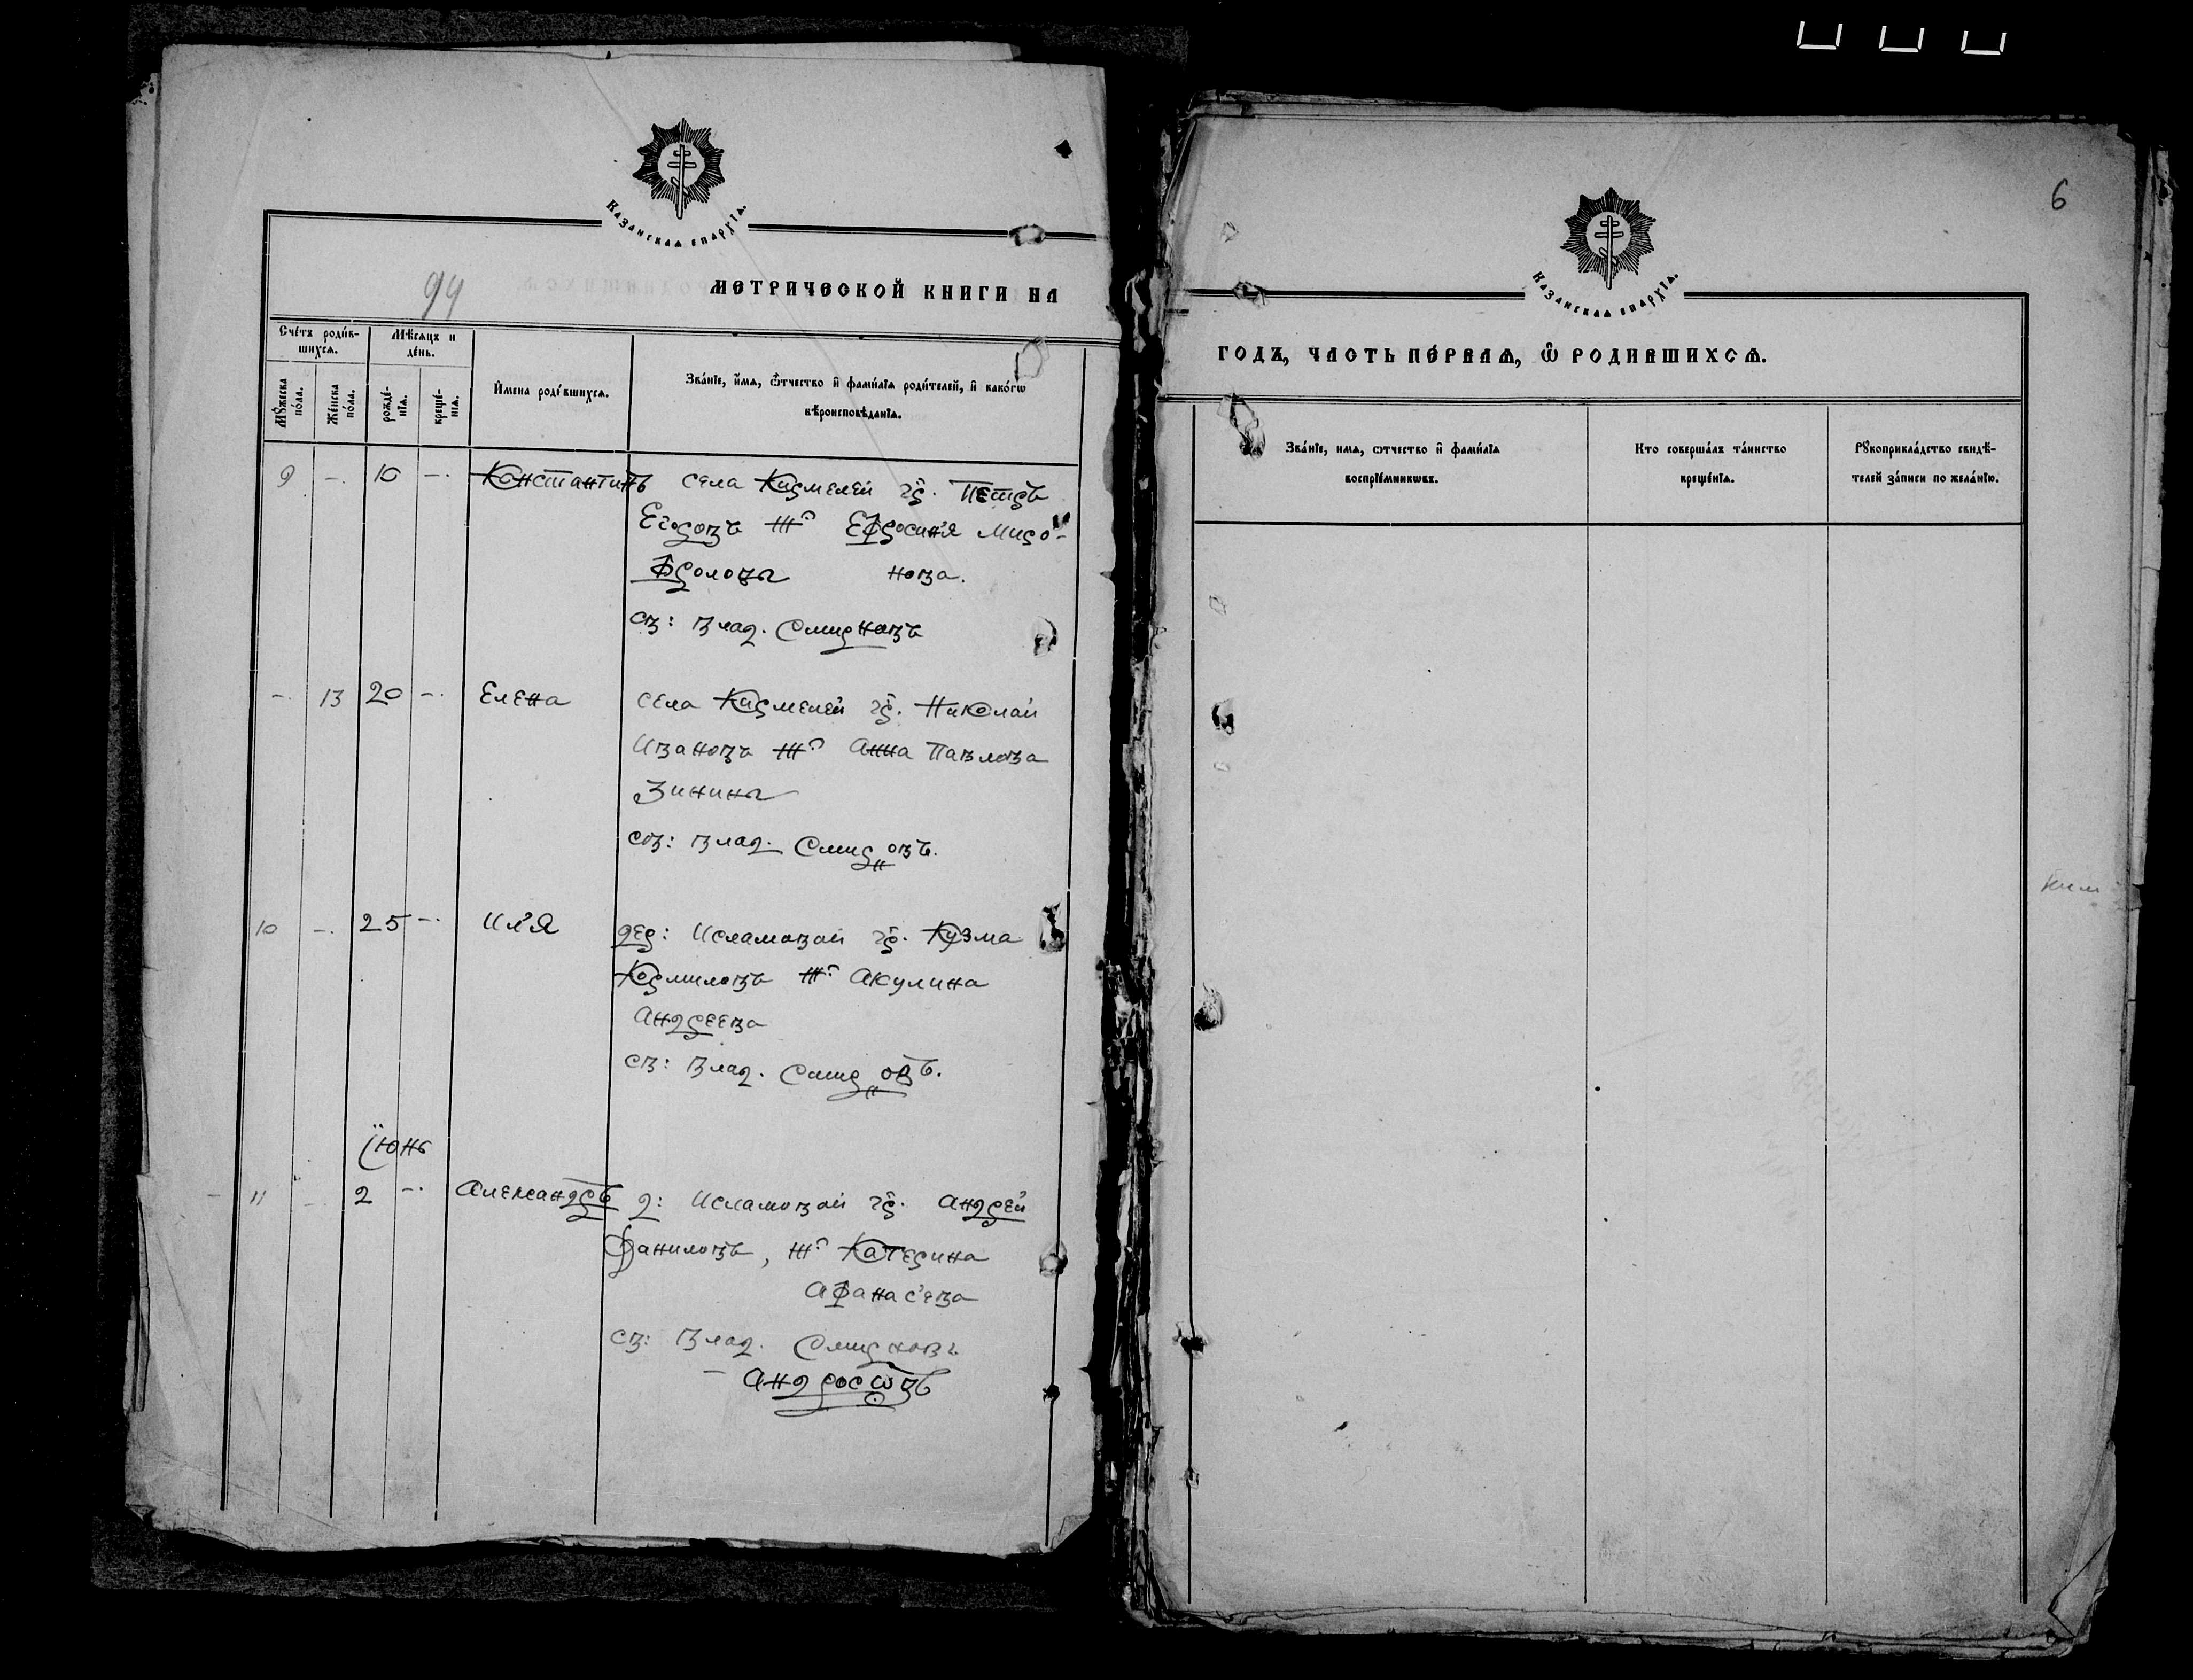 Казанская епархїѧ.
99
МЕТРИЧЕСКОЙ КНИГИ НА
Сче́тъ роди́в-
шихсѧ.
Мѣ́сѧцъ и
де́нь.
Мꙋ́жеска
по́ла.
Же́нска
по́ла.
рожде́-
нїѧ.
креще́-
нїѧ.
И҆мена роди́вшихсѧ.
Зва́нїе, и҆мѧ, ѻ҆́тчество и҆ фами́лїѧ роди́телей, и҆ како́гѡ
вѣ̈роисповѣ́данїѧ.
9 —. 10 —. Константинъ села Кирмелей гр. Петръ
Егоровъ жо Ефросиня Миро-
Фроловы нова.
св: влад. Смирновъ
—. 13 20 —. Елена села Кирмелей гр. Николай
Ивановъ жо Анна Павлова
Зинины
св: влад. Смирновъ.
10 —. 25 —. Илья дер: Исламовой гр. Кузма
Кормиловъ жо Акулина
Андреева
св: влад. Смирновъ.
їюнь
11 — 2 —. Александръ д: Исламовой гр. Андрей
Даниловъ, жо Катерина
Афанасьева
св: влад. Смирновъ
— Андросовъ
6
Казанская епархїѧ.
ГОДЪ, ЧАСТЬ ПЕ́РВАѦ, Ѽ РОДИВШИХСѦ.
Зва́нїе, имѧ, ѻтчество и҆ фами́лїѧ
воспрїе́мникѡвъ.
Кто соверша́лъ та́инство
креще́нїѧ.
Рꙋкоприкла́дство свидѣ́-
телей за́писи по жела́нїю.